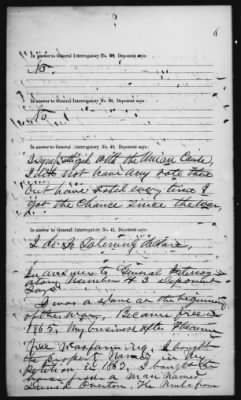 6
In answer to General Interrogatory No. 38, Deponent says:
No.
In answer to General Interrogatory No. 39, Deponent says:
No
In answer to General Interrogatory No. 40, Deponent says:
I sympathized with the Union Cause,
I did not have any vote then
but have voted every time I
got the chance since the war
In answer to General Interrogatory No. 41, Deponent says:
I do so Solemnly declare,
In answer to General Interrog-
atory Number 43 Deponent
I was a slave at the beginning
of the War, Became free in
1865. My business after I became
free was farming. I bought
the property named in my
petition in 1863. I bought the
from a man named
Overton, The Mule from